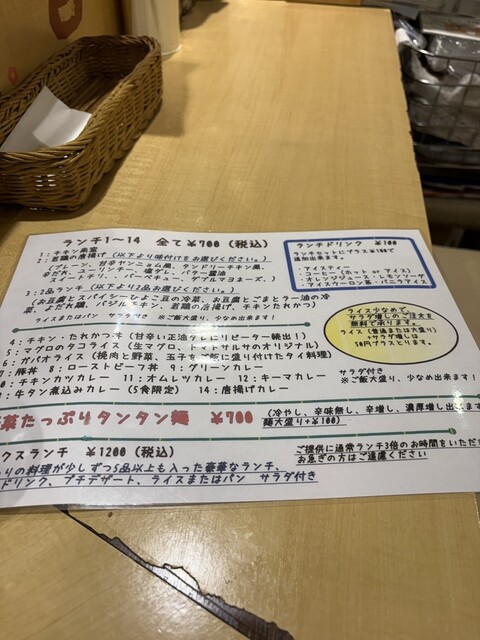 ランチ1～14 全て¥700(税込)
1:チキン南蛮
2:若鶏の唐揚げ(以下より味付けをお選びください。)
(プレーン、甘辛ヤンニョム風、タンドリーチキン風、
辛だれ、ユーリンチー、塩ダレ、バター醤油
スイートチリ、、バーベキュー、タルマヨネーズ、)
3:2品ランチ(以下より2品お選びください)
(お豆腐とスパイシーひよこ豆の冷菜、お豆腐とごまとラー油の冷
菜、よだれ鶏、バジルとチキン、若鶏の唐揚げ、チキンたれかつ)
ライスまたはパン サラダ付き ※ご飯大盛り、少なめ出来ます!
ランチドリンク ¥100
ランチセットにプラス¥100で
追加出来ます。
・アイスティー
・コーヒー(ホット or アイス)
・オレンジジュース・レモンソーダ
・アイスウーロン茶・バニラアイス
ライス少なめで、
サラダ増しのご注文も
無料で承ります。
ライス(普通または大盛り)
+サラダ増しは
50円プラスとります。
4:チキン・たれかつ丼(甘辛い正油タレにリピーター続出!)
5:マグロのタコライス(生マグロ、トマトサルサのオリジナル)
6:ガパオライス(挽肉と野菜、玉子をご飯に盛り付けたタイ料理)
7:豚丼 8:ローストビーフ丼 9:グリーンカレー
10:チキンカツカレー 11:オムレツカレー 12:キーマカレー
:牛タン煮込みカレー(5食限定) 14:唐揚げカレー
サラダ付き
※ご飯大盛り、少なめ出来ます!
菜たっぷりタンタン麺 ¥700
(冷やし、辛味無し、辛増し、濃厚増し出来ます
麺大盛り+¥100)
クスランチ ¥1200(税込)
りの料理が少しずつ5品以上も入った豪華なランチ、
ドリンク、プチデザート、ライスまたはパン サラダ付き
ご提供に通常ランチ3倍のお時間をいただ
お急ぎの方はご遠慮ください